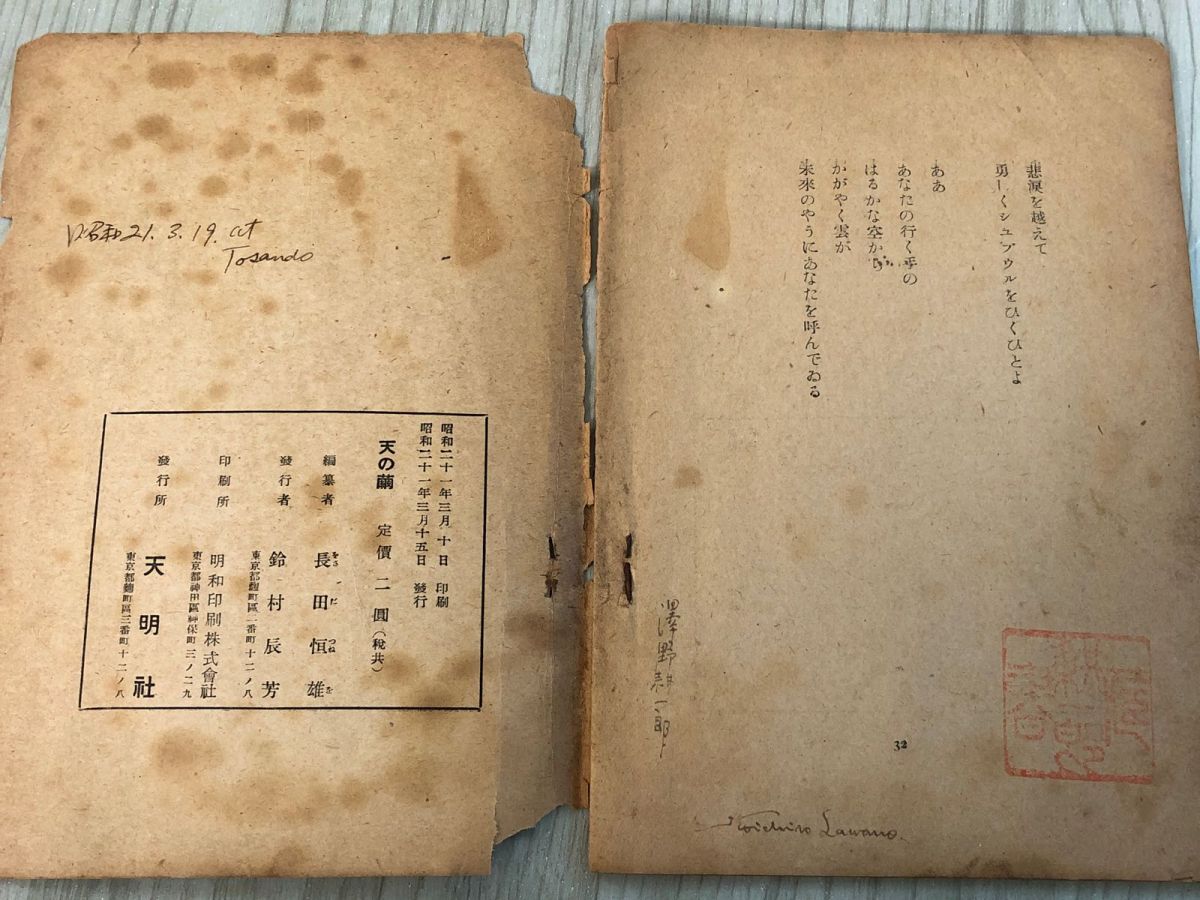 悲淚を越えて
勇しくシユプウルをひくひとよ
ああ
あなたの行く手の
はるかな空から
かがやく雲が
未來のやうにあなたを呼んでゐる
32
澤野
一郎
Koichiro Sawano.
昭和21.3.19. at
Tosando
昭和二十一年三月十日 印刷
昭和二十一年三月十五日 發行
天の繭 定價 二圓(稅共)
編纂者 長田恒雄
をさだつねを
發行者 鈴村辰芳
東京都麴町區二番町十二ノ八
印刷所 明和印刷株式會社
東京都神田區神保町三ノ二九
發行所 天明社
東京都麴町區三番町十二ノ八